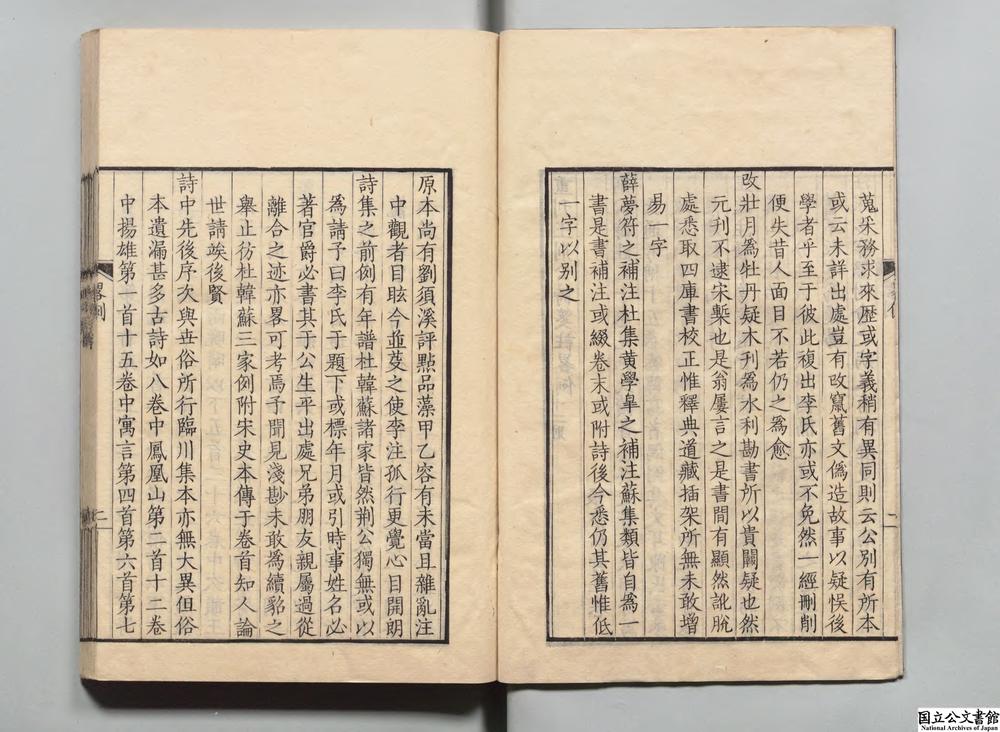 蒐采務求來歷或字義稍有異同則云公別有所本
或云未詳出處豈有改竄舊文僞造故事以疑悮後
學者乎至于彼此複出李氏亦或不免然一經刪削
便失昔人面目不若仍之爲愈
改壯月爲牡丹疑木刋爲水利勘書所以貴闕疑也然
元刋不逮宋槧也是翁屢言之是書間有顯然訛脫
處悉取四庫書校正惟釋典道藏插架所無未敢增
易一字
薛夢符之補注杜集黄學皐之補注蘇集類皆自爲一
書是書補注或綴卷末或附詩後今悉仍其舊惟低
一字以別之
原本尚有劉須溪評㸃品藻甲乙容有未當且雜亂注
中觀者目眩今並芟之使李注孤行更覺心目開朗
詩集之前例有年譜杜韓蘇諸家皆然荆公獨無或以
爲請予曰李氏于題下或標年月或引時事姓名必
著官爵必書其于公生平出處兄弟朋友親屬過從
離合之迹亦畧可考焉予聞見淺尠未敢爲續貂之
舉止彷杜韓蘇三家例附宋史本傳于卷首知人論
世請竢後賢
詩中先後序次與世俗所行臨川集本亦無大異但俗
本遺漏甚多古詩如八卷中鳳凰山第二首十二卷
中揚雄第一首十五卷中寓言第四首第六首第七
畧例
二
国立公文書館
National Archives of Japan